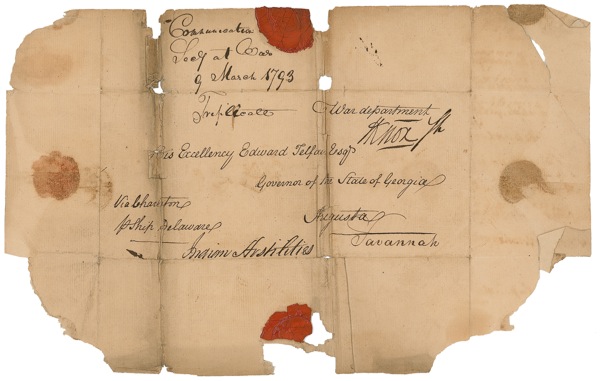 Communication
Secy at War
9 March 1793
Triplicate
War department
Knox
His Excellency Edward Telfair Esqr
Governor of the State of Georgia
Via Charston
pr Ship Delaware
Augusta
Savannah
Hostilities